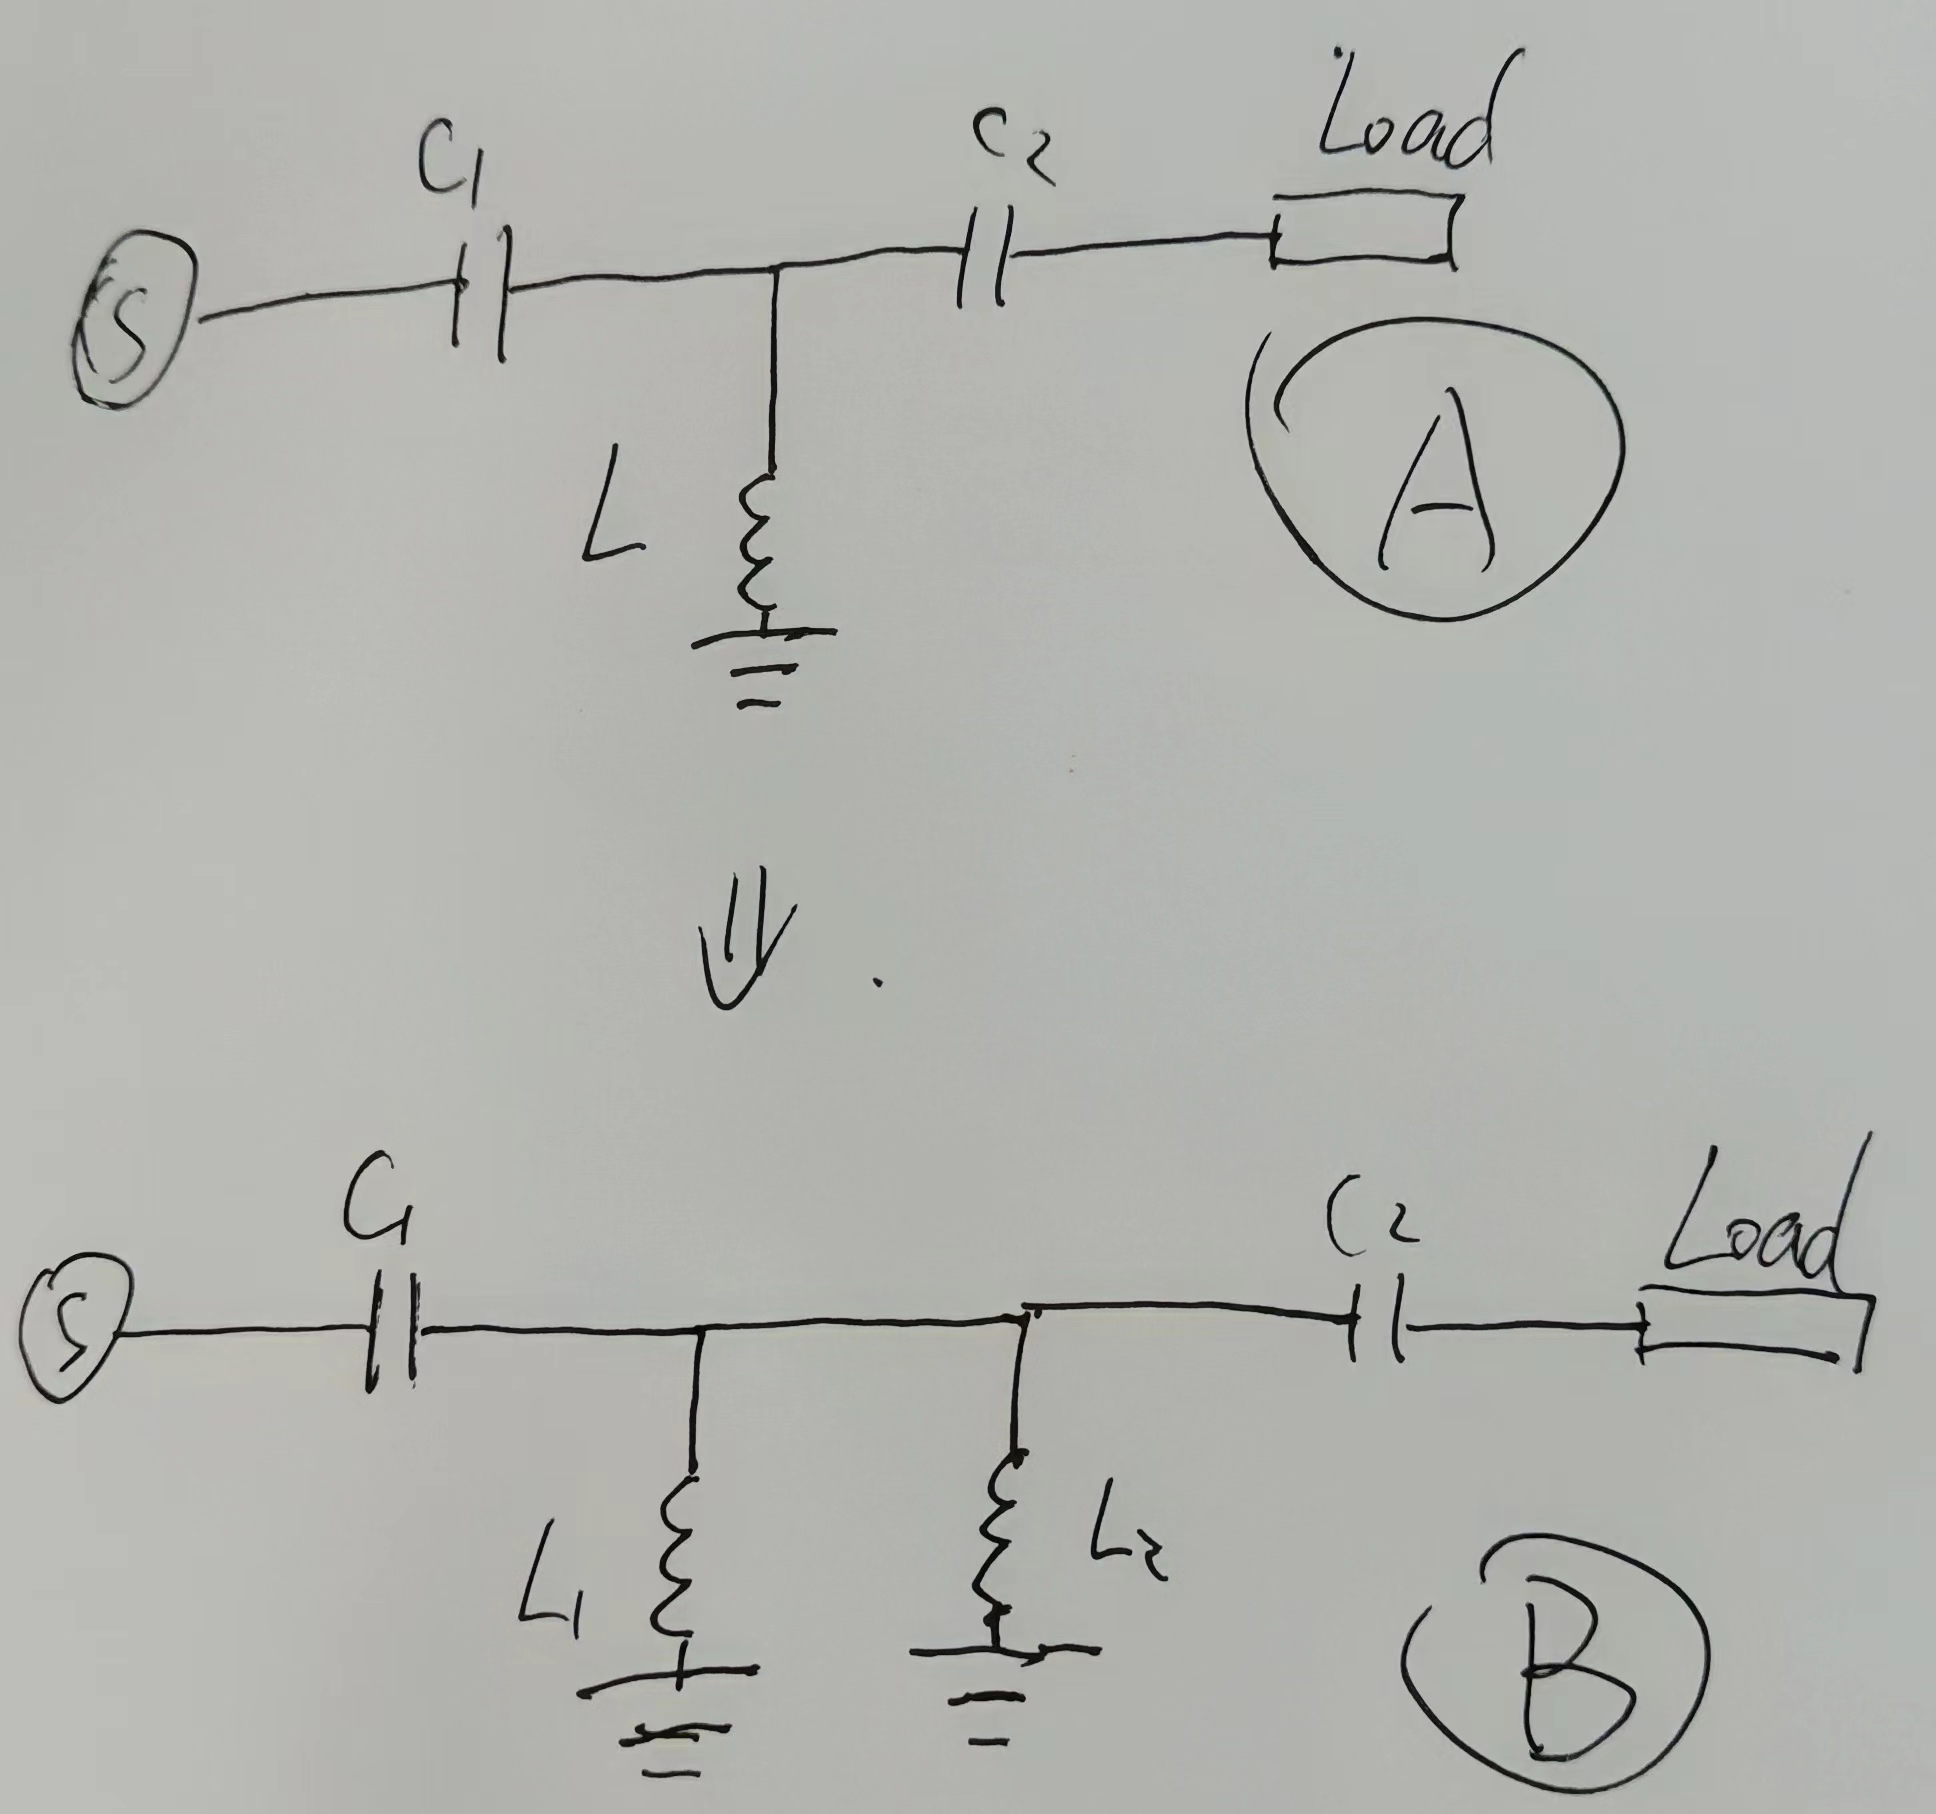 C1
C2
Load
S
L
A
C1
C2
Load
S
L1
L2
B